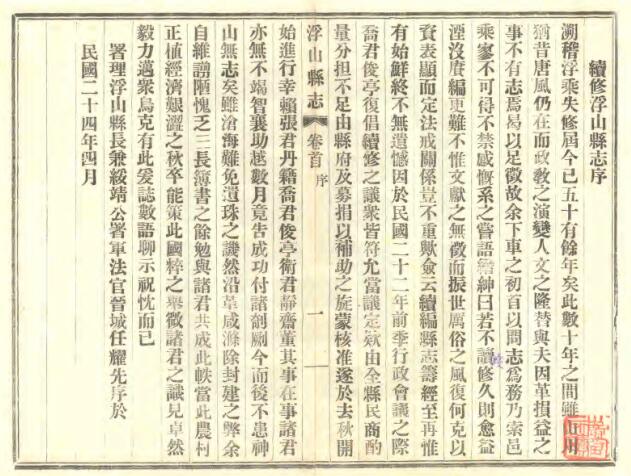 續修浮山縣志序
溯稽浮乘失修屆今已五十有餘年矣此數十年之間雖山川
猶昔唐風仍在而政教之演變人文之隆替與夫因革損益之
事不有志焉曷以足徵故余下車之初首以問志爲務乃索邑
乘寥不可得不禁感慨系之嘗語諸紳曰若不讀修久則愈益
湮沒賡編更難不惟文獻之無徵而振世厲俗之風復何克以
資表顯而定法戒關係豈不重歟僉云續編縣志籌經至再惟
有始鮮終不無遺憾因於民國二十二年前季行政會議之際
喬君俊亭復倡續修之議衆皆符允當議定欵由全縣民商酌
量分担不足由縣府及募捐以補助之旋蒙核准遂於去秋開
浮山縣志 卷首 序 一
始進行幸賴張君丹籍喬君俊亭衛君靜齋董其事在事諸君
亦無不竭智襄助越數月竟告成功付諸剞劂今而後不患神
山無志矣雖滄海難免遺珠之譏然沿革咸滌除封建之弊余
自維謭陋愧乏三長簿書之餘勉與諸君共成此帙當此農村
正值經濟艱澀之秋卒能策此國粹之舉微諸君之識見卓然
毅力邁衆烏克有此爰誌數語聊示祝忱而已
署理浮山縣長兼綏靖公署軍法官晉城任耀先序於
民國二十四年四月